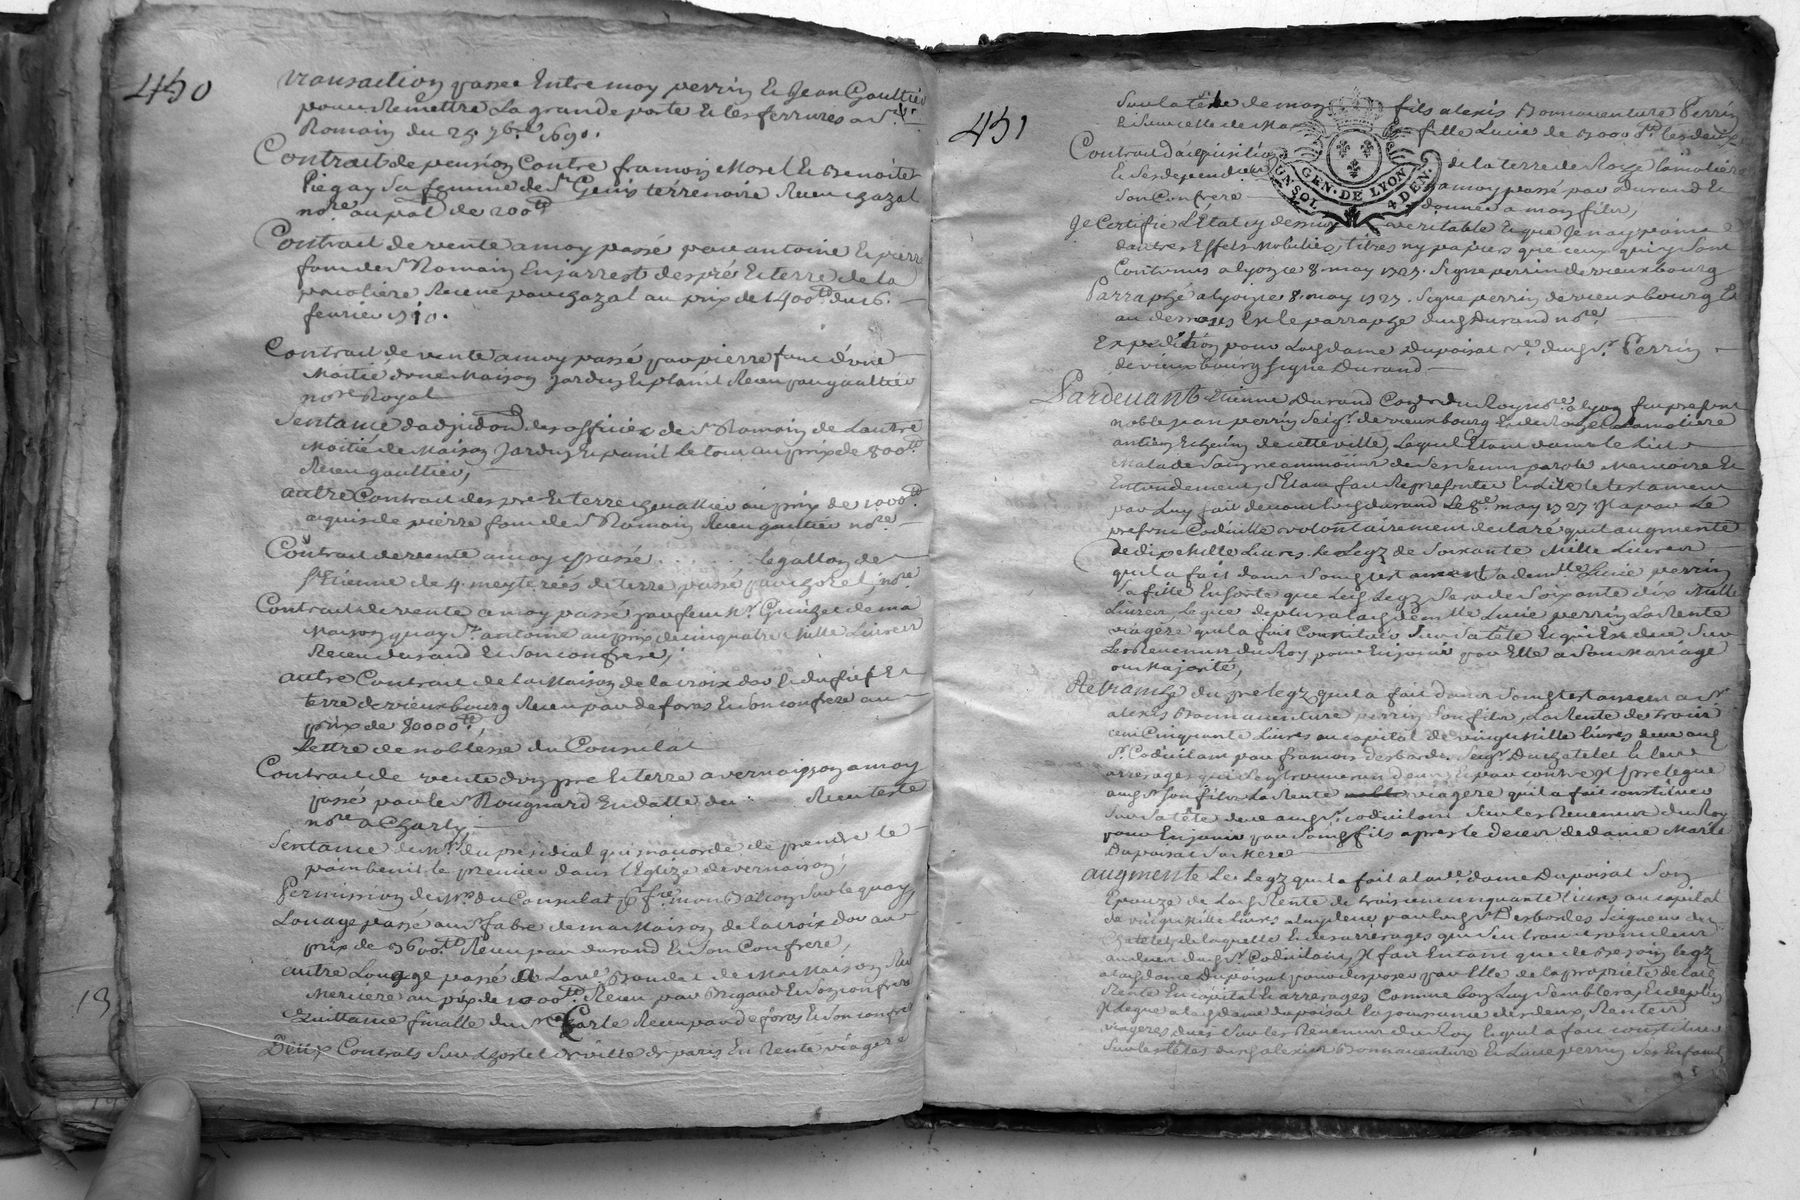 450
transaction passée Entre moy perrin Et Jean Gaultier
pour Remettre La grande porte Et les ferrures a St
Romain du 25 7bre 1690.
Contrait de pension Contre francois Morel Et Benoite
Piegay Sa femme de St Genis terrenoire Receu chazal
nore au pal de 200tt
Contrait de vente a moy passé par antoine Et pierre
fond de St Romain En jarrest des pré Et terre de la
pacoliere Receue par chazal au prix de 1400tt du 6.
fevrier 1710.
Contrait de vente a moy passé par pierre fond d'une
Moitié d'une Maison Jardin Et plastre Receu par gaultier
nore Royal
Sentance d'adjudon des officiers de St Romain de L'autre
Moitié de Maison Jardin Et le tout au prix de 800tt
Receu gaultier,
autre Contrait des pre Et terre au prix de 1000tt
acquis de pierre fond de St Romain Receu gaultier nore
Contrait de vente a moy passé . . . . . . le gallon de
St Etienne de 4 meyterées de terre passé par nore
Contrait de vente a moy passé par feu Mr de ma
Maison quay St antoine au prix de cinquatre Mille Livres
Receu durand Et Son confrere,
autre Contrait de la Maison de la croix d'or Et du fief Et
terre de vieuxbourg Receu par deforas Et Son confrere au
prix de 80000tt
Lettre de noblesse du Consulat
Contrait de vente d'un pre Et terre a vernaison a moy
passé par le Sr Rougnard En datte du Receu teste
nore a Charly
Sentance de Mrs du presidial qui m'accorde de prendre le
pain benit le premier dans L'Eglize de vernaison,
Permission de Mrs du Consulat mon Balcon Sur le quay
Louage passé au Sr fabre de ma Maison de la croix d'or au
prix de 3600tt Receu par durand Et Son Confrere,
autre Louage passé a La ve Baudet de Ma Maison Rue
Merciere au prix de 1000tt Receu par Brigaud Et Son confrere
Quittance finalle du Sr Carle Receu par deforas Et Son confrere
Deux Contrats Sur L'hostel de ville de paris En Rente viagere
451
Sur la tête de mon fils alexis Bonnaventure Perrin
Et Sur celle de Ma fille Lucie de 3000tt Les deux
Contrait d'acquisition de la terre de Roze lamoliere
Et Ses dependances a moy passé par Durand Et
Son Confrere donnée a mon fils,
Je Certifie L'Etat cy dessus veritable Et que Je n'ay point
d'autres Effets Mobilies, titres ny papiers que ceux qui y Sont
Contenus a lyon ce 8 may 1727. Signe perrin de vieuxbourg
Parraphé a lyon ce 8 may 1727. Signe perrin de vieuxbourg Et
au dessous Est le parraphe dud Durand nore
Expedition pour Lad dame Dupoisat ve dud Sr Perrin
de vieuxbourg Signe Durand
Pardevant Etienne Durand Coner du Roy nore a lyon fut present
noble jean perrin Seigr de vieuxbourg Et de Roze Lamoliere
antien Echevin de cette ville, Lequel Etant dans le Lit
Malade Sain neanmoins de Ses Sens parole Memoire Et
Entendement, S'Etant fait Representer Et Lire le testament
par Luy fait devant led durand Le 8e may 1727 Il a par Le
present Codicille volontairement declaré qu'il augmente
de dix Mille Livres le Legz de Soixante Mille Livres
qu'il a fait dans Sond testament a demlle Lucie perrin
Sa fille En Sorte que Led Legz Sera de Soixante dix Mille
Livres, Legue de plus a lad demlle Lucie perrin La Rente
viagere qu'il a fait Constituer Sur Sa tête Et qui Est due Sur
Les Revenus du Roy pour En jouir par Elle a Son Mariage
ou Majorité,
Retranche du prelegz qu'il a fait dans Sond testament a Sr
alexis Bonnaventure perrin Son fils, La Rente de trois
cent Cinquante Livres au capital de vingt Mille Livres deue aud
Sr Codicilant par francois desbordes Seigr Duchatelet Et leur
arrerages qui Se trouveront deus, Et par contre Il prelegue
aud Sr Son fils La Rente viagere qu'il a fait constituer
Sur Sa tête deue aud Sr codicilant Sur les Revenus du Roy
pour En jouir par Sond fils apres le deces de dame Marie
Dupoisat Sa Mere
augmente Le Legz qu'il a fait a lad dame Dupoisat Son
Epouze de Lad Rente de trois cent cinquante livres au capital
de vingt Mille Livres a luy deue par led Sr Desbordes Seigneur du
Chatelet, de laquelle Et des arrerages qui Se trouveront deus
au deces dud Sr Codicilant, Il fait En tant que de Besoin legz
a lad dame Dupoisat pour disposer par Elle de la proprieté de lad
Rente En capital Et arrerages Comme bon Luy Semblera, Et de plus
Il Legue a lad dame dupoisat la jouissance des deux Rentes
viageres dues Sur les Revenus du Roy Et qu'il a fait constituer
Sur les têtes dud alexis Bonnaventure Et Lucie perrin Ses Enfants
GEN. DE LYON
UN SOL 4 DEN.